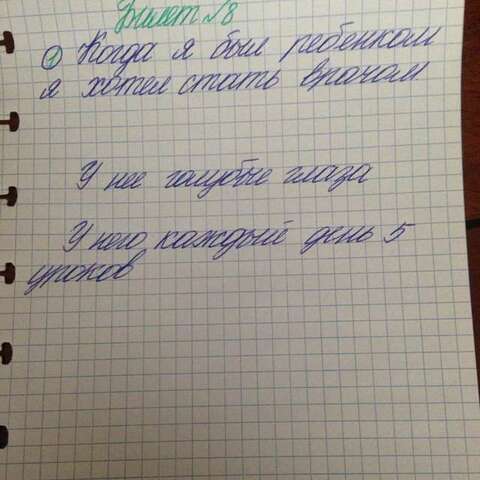 Билет №8
① Когда я был ребенком
я хотел стать врачом
У нее голубые глаза
У него каждый день 5
уроков